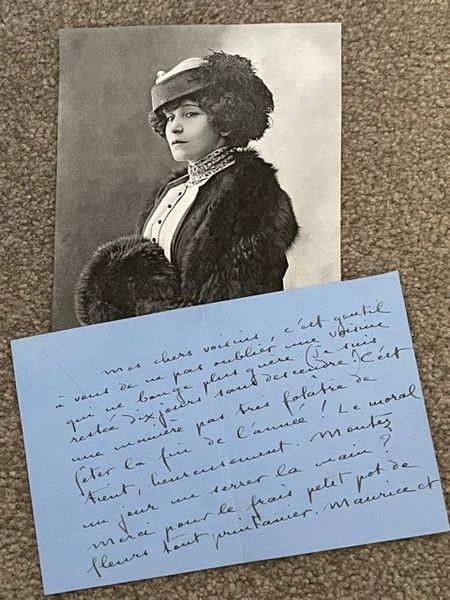 Mes chers voisins, c'est gentil
à vous de ne pas oublier une voisine
qui ne bouge plus guère (Je suis
restée dix jours sans descendre!) C'est
une manière pas très folâtre de
fêter la fin de l'année! Le moral
tient, heureusement. Montez
un jour me serrer la main?
Merci pour le frais petit pot de
fleurs tout printanier. Maurice et